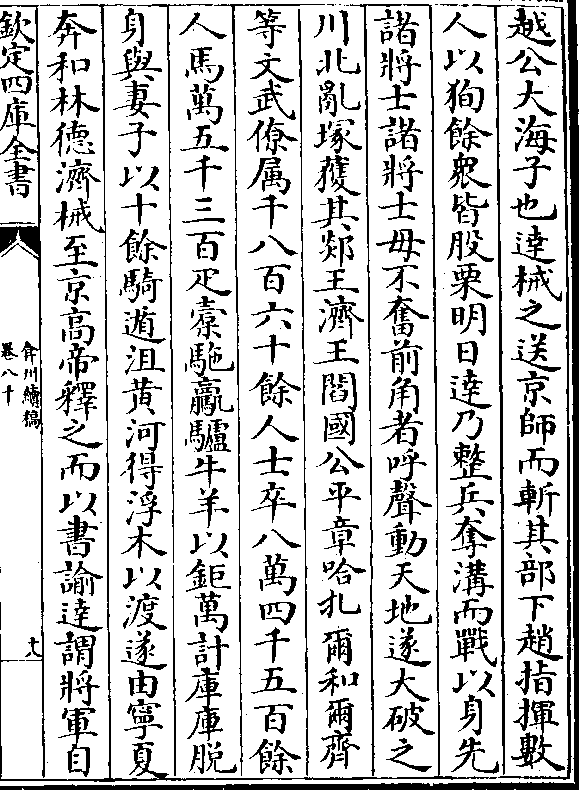 越公大海子也達械之送京師而斬其部下趙指揮數
人以狥餘衆皆股栗明日達乃整兵奪溝而戰以身先
諸將士諸將士毋不奮前角者呼聲動天地遂大破之
川北亂塚獲其郯王濟王閻國公平章哈扎爾和爾齊
等文武僚属千八百六十餘人士卒八萬四千五百餘
人馬萬五千三百疋橐駞驘驢牛羊以鉅萬計庫庫脱
身與妻子以十餘騎遁沮黄河得浮木以渡遂由寧夏
奔和林德濟械至京高帝釋之而以書諭達謂將軍自
欽定四庫全書
弇州續稿
卷八十